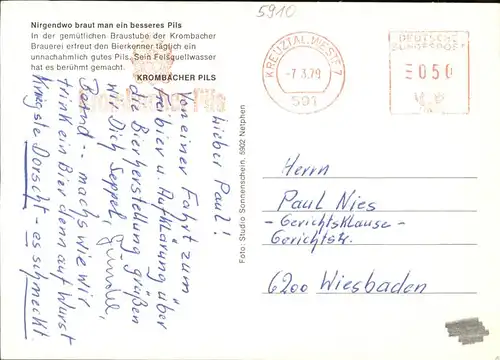 5910
Nirgendwo braut man ein besseres Pils
In der gemütlichen Braustube der Krombacher
Brauerei erfreut den Bierkenner täglich ein
unnachahmlich gutes Pils. Sein Felsquellwasser
hat es berühmt gemacht.
KROMBACHER PILS
Krombacher Pils
KREUZTAL, WESTF 7
-7.3.79
591
DEUTSCHE
BUNDESPOST
050
Lieber Paul!
Von einer Fahrt zum
Freibier u. Aufklärung über
die Bierherstellung grüßen
wir Dich Seppel,
Bernd -- machs wie wir
trink ein Bier denn auf Wurst
kriegste Dorscht - es schmeckt.
Foto: Studio Sonnenschein, 5902 Netphen
Herrn
Paul Nies
- Gerichtsklause -
Gerichtstr.
6200 Wiesbaden